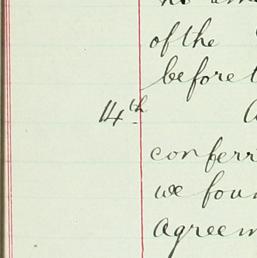 of the
before t
14th
conferr
we foun
agreem